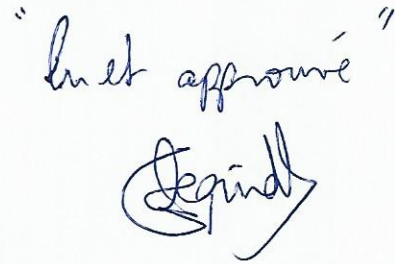 "lu et approuvé"